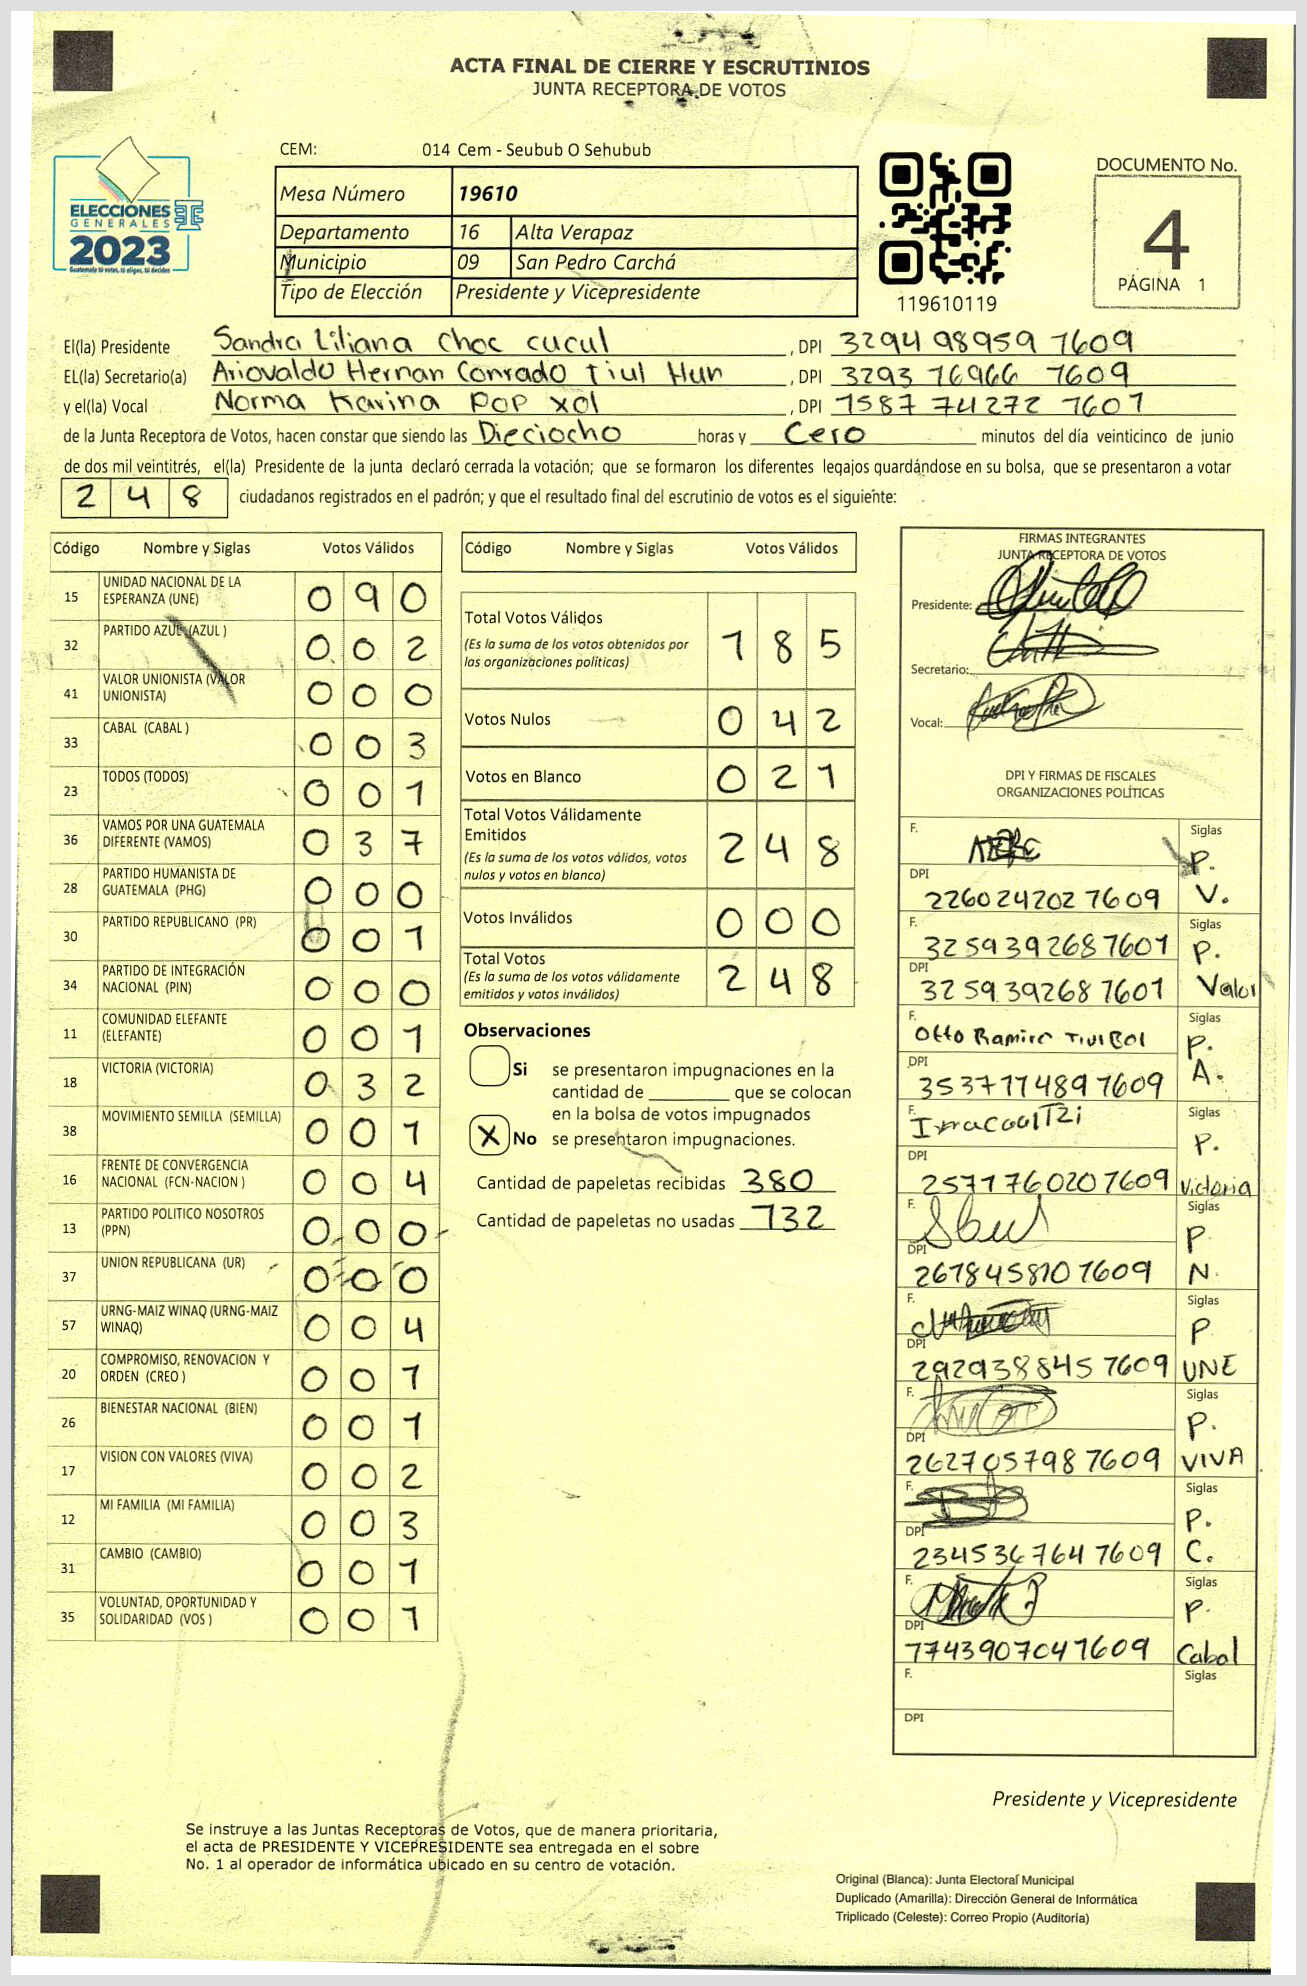 ACTA FINAL DE CIERRE Y ESCRUTINIOS
JUNTA RECEPTORA DE VOTOS
ELECCIONES
GENERALES
2023
Guatemala tú votes, tú eliges, tú decides
CEM: 014 Cem - Seubub O Sehubub
Mesa Número 19610
Departamento 16 Alta Verapaz
Municipio 09 San Pedro Carchá
Tipo de Elección Presidente y Vicepresidente
119610119
DOCUMENTO No.
4
PÁGINA 1
El(la) Presidente Sandra Liliana Choc cucul , DPI 3294 98959 1609
EL(la) Secretario(a) Ariovaldo Hernan Conrado Tiul Hun , DPI 3293 76966 1609
y el(la) Vocal Norma Karina POP xol , DPI 1587 74272 1601
de la Junta Receptora de Votos, hacen constar que siendo las Dieciocho horas y Cero minutos del día veinticinco de junio
de dos mil veintitrés, el(la) Presidente de la junta declaró cerrada la votación; que se formaron los diferentes legajos guardándose en su bolsa, que se presentaron a votar
248 ciudadanos registrados en el padrón; y que el resultado final del escrutinio de votos es el siguiente:
Código Nombre y Siglas Votos Válidos
15 UNIDAD NACIONAL DE LA ESPERANZA (UNE) 0 9 0
32 PARTIDO AZUL (AZUL ) 0 0 2
41 VALOR UNIONISTA (VALOR UNIONISTA) 0 0 0
33 CABAL (CABAL ) 0 0 3
23 TODOS (TODOS) 0 0 1
36 VAMOS POR UNA GUATEMALA DIFERENTE (VAMOS) 0 3 7
28 PARTIDO HUMANISTA DE GUATEMALA (PHG) 0 0 0
30 PARTIDO REPUBLICANO (PR) 0 0 1
34 PARTIDO DE INTEGRACIÓN NACIONAL (PIN) 0 0 0
11 COMUNIDAD ELEFANTE (ELEFANTE) 0 0 1
18 VICTORIA (VICTORIA) 0 3 2
38 MOVIMIENTO SEMILLA (SEMILLA) 0 0 1
16 FRENTE DE CONVERGENCIA NACIONAL (FCN-NACION ) 0 0 4
13 PARTIDO POLITICO NOSOTROS (PPN) 0 0 0
37 UNION REPUBLICANA (UR) 0 0 0
57 URNG-MAIZ WINAQ (URNG-MAIZ WINAQ) 0 0 4
20 COMPROMISO, RENOVACION Y ORDEN (CREO ) 0 0 1
26 BIENESTAR NACIONAL (BIEN) 0 0 1
17 VISION CON VALORES (VIVA) 0 0 2
12 MI FAMILIA (MI FAMILIA) 0 0 3
31 CAMBIO (CAMBIO) 0 0 1
35 VOLUNTAD, OPORTUNIDAD Y SOLIDARIDAD (VOS ) 0 0 1
Código Nombre y Siglas Votos Válidos
Total Votos Válidos 1 8 5
(Es la suma de los votos obtenidos por
las organizaciones políticas)
Votos Nulos 0 4 2
Votos en Blanco 0 2 1
Total Votos Válidamente
Emitidos 2 4 8
(Es la suma de los votos válidos, votos
nulos y votos en blanco)
Votos Inválidos 0 0 0
Total Votos 2 4 8
(Es la suma de los votos válidamente
emitidos y votos inválidos)
Observaciones
Si se presentaron impugnaciones en la
cantidad de ________ que se colocan
en la bolsa de votos impugnados
X No se presentaron impugnaciones.
Cantidad de papeletas recibidas 380
Cantidad de papeletas no usadas 132
FIRMAS INTEGRANTES
JUNTA RECEPTORA DE VOTOS
Presidente:
Secretario:
Vocal:
DPI Y FIRMAS DE FISCALES
ORGANIZACIONES POLÍTICAS
F. Siglas P. V.
DPI 226024202 1609
F. 3259392681601 Siglas P. Valor
DPI 3259392681601
F. Otto Ramiro Tiul Bol Siglas P. A.
DPI 3537114891609
F. Siglas P. Victoria
DPI 2571760201609
F. Siglas P. N.
DPI 2678458101609
F. Siglas P UNE
DPI 2929388451609
F. Siglas P. VIVA
DPI 2627057981609
F. Siglas P. C.
DPI 2345367641609
F. Siglas P. Cabal
DPI 1743907041609
F. Siglas
DPI
Presidente y Vicepresidente
Se instruye a las Juntas Receptoras de Votos, que de manera prioritaria,
el acta de PRESIDENTE Y VICEPRESIDENTE sea entregada en el sobre
No. 1 al operador de informática ubicado en su centro de votación.
Original (Blanca): Junta Electoral Municipal
Duplicado (Amarilla): Dirección General de Informática
Triplicado (Celeste): Correo Propio (Auditoría)